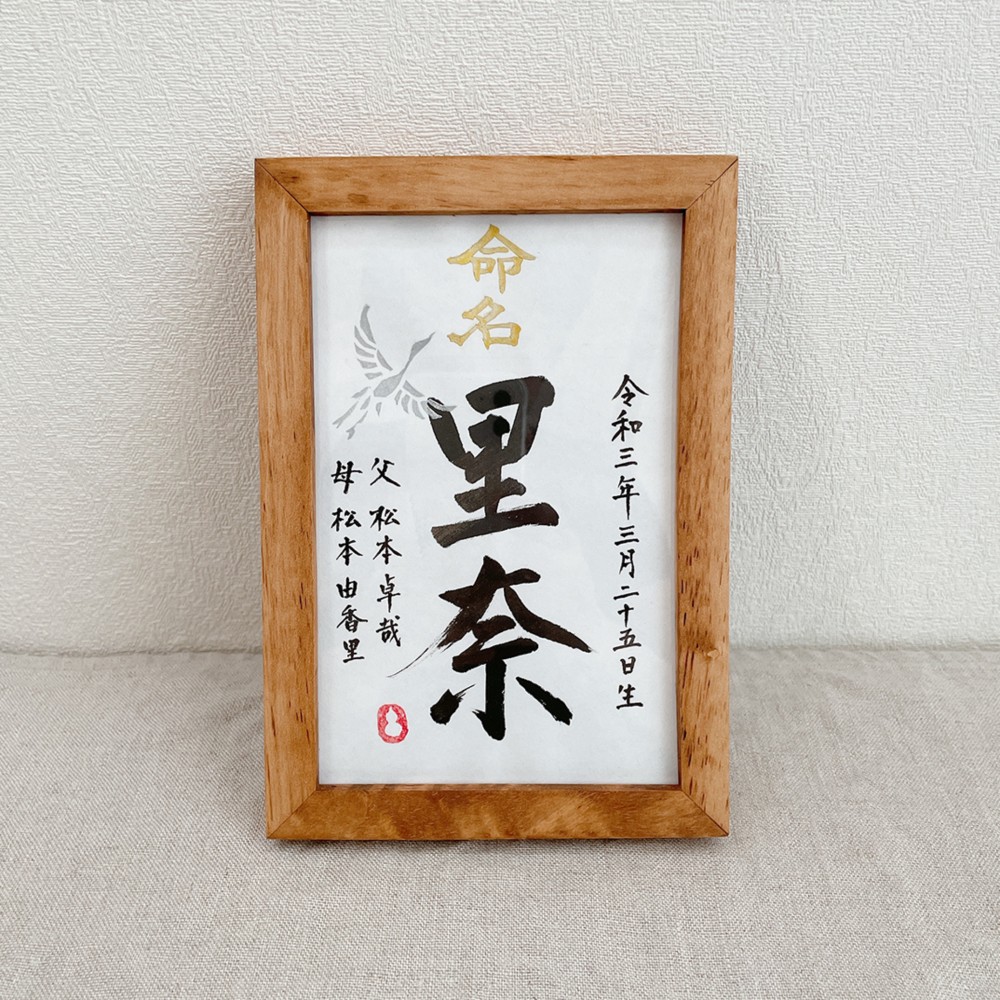 命名
令和三年三月二十五日生
里奈
父 松本卓哉
母 松本由香里